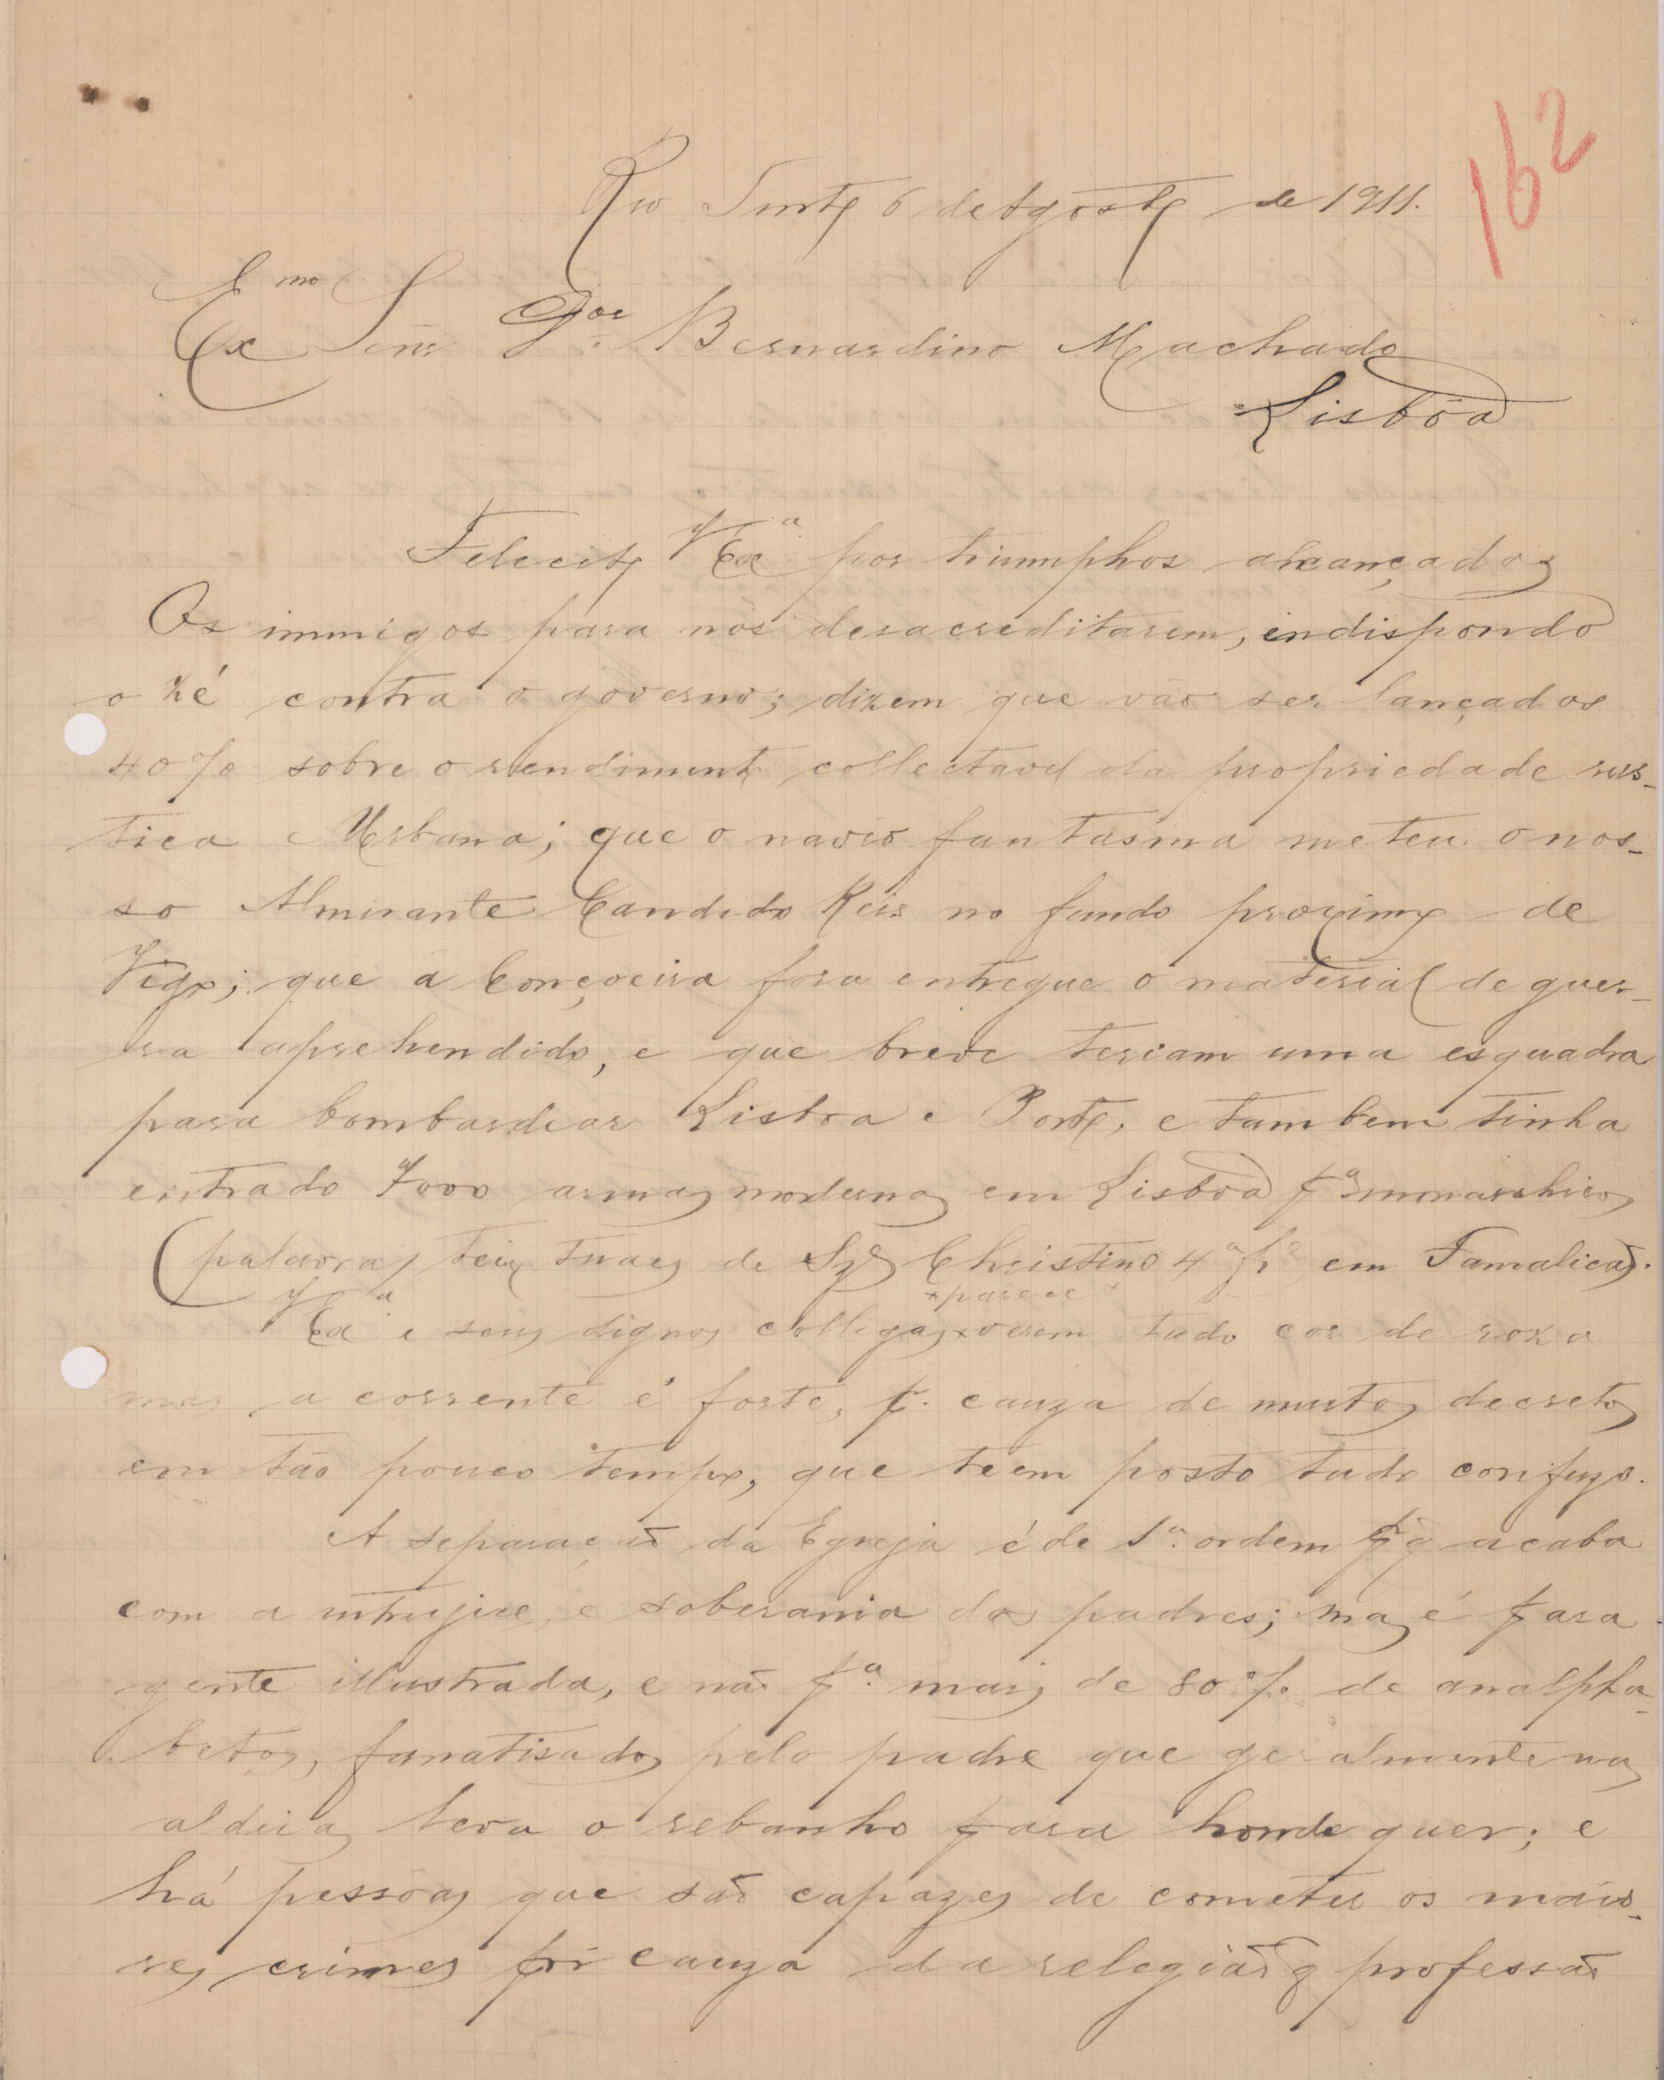 162
Rio Tinto 6 de Agosto de 1911.
Exmo Senr Dor Bernardino Machado
Lisbôa
Felecito V Exa por triumphos alcançados
Os inmigos para nós desacreditarem, indispondo
o Zé contra o governo; dizem que vão ser lançados
40% sobre o rendimento collectavel da propriedade rus-
tica e Urbana; que o navio fantasma meteu o nos-
so Almirante Candido Reis no fundo proximo de
Vigo; que a Conçoeira fora entregue o material de guer-
ra aprehendido, e que breve teriam uma esquadra
para bombardear Lisboa e Porto, e tambem tinha
entrado 7000 armas modernas em Lisbôa pa monarchicos
(palavras teis tuaes de Christino 4a fra em Famalicão).
V Exa e seus dignos collegas x verem tudo cor de roza
x parece x
mas a corrente é forte, p. cauza de muitos decretos
em tão pouco tempo, que teem posto tudo confuzo.
A separação da Egreja é de 1a ordem pr q acaba
com a intrujice, e soberania dos padres; mas é para
gente illustrada, e não pa mais de 80% de analpha-
betos, fanatisados pelo padre que geralmente nas
aldeias leva o rebanho para honde quer; e
há pessôas que são capazes de cometer os maio-
res crimes por cauza da relegião q professão